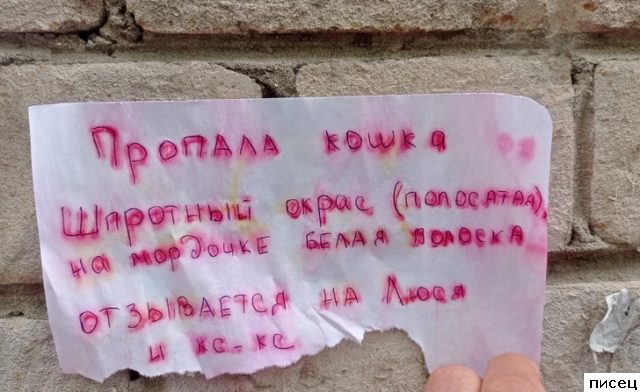 Пропала кошка
Шпротный окрас (полосатая),
на мордочке белая полоска
отзывается на Люся
и кс-кс
писец